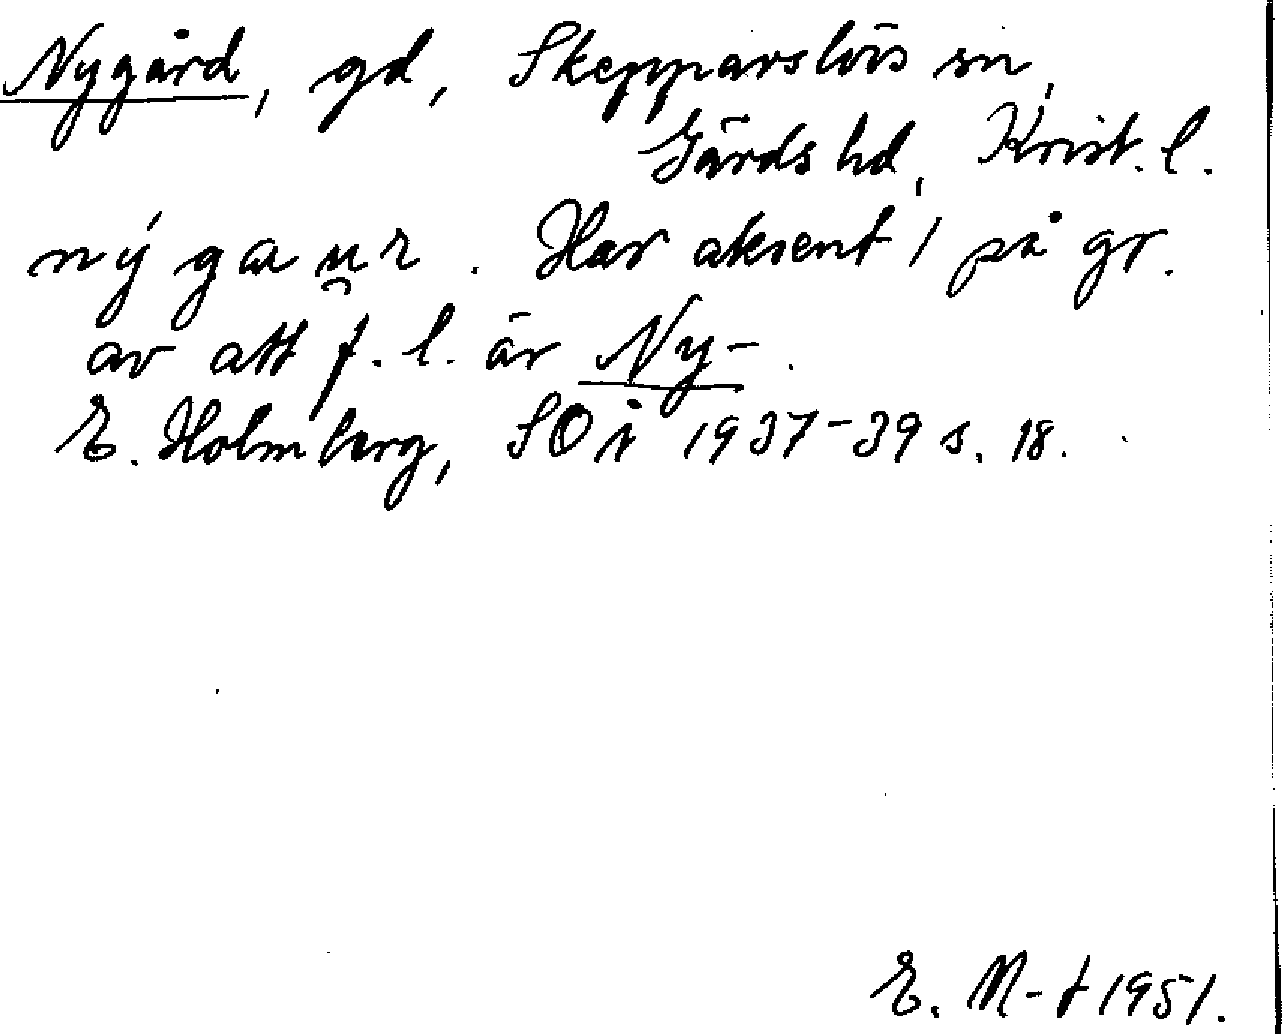 Nygård, gd, Skepparslövs sn,
Gärds hd, Krist. l.
nýgau̯r. Har aksent 1 på gr.
av att f. l. är Ny-.
E. Holmberg, SOÅ 1937-39 s. 18.
E. N-t 1951.